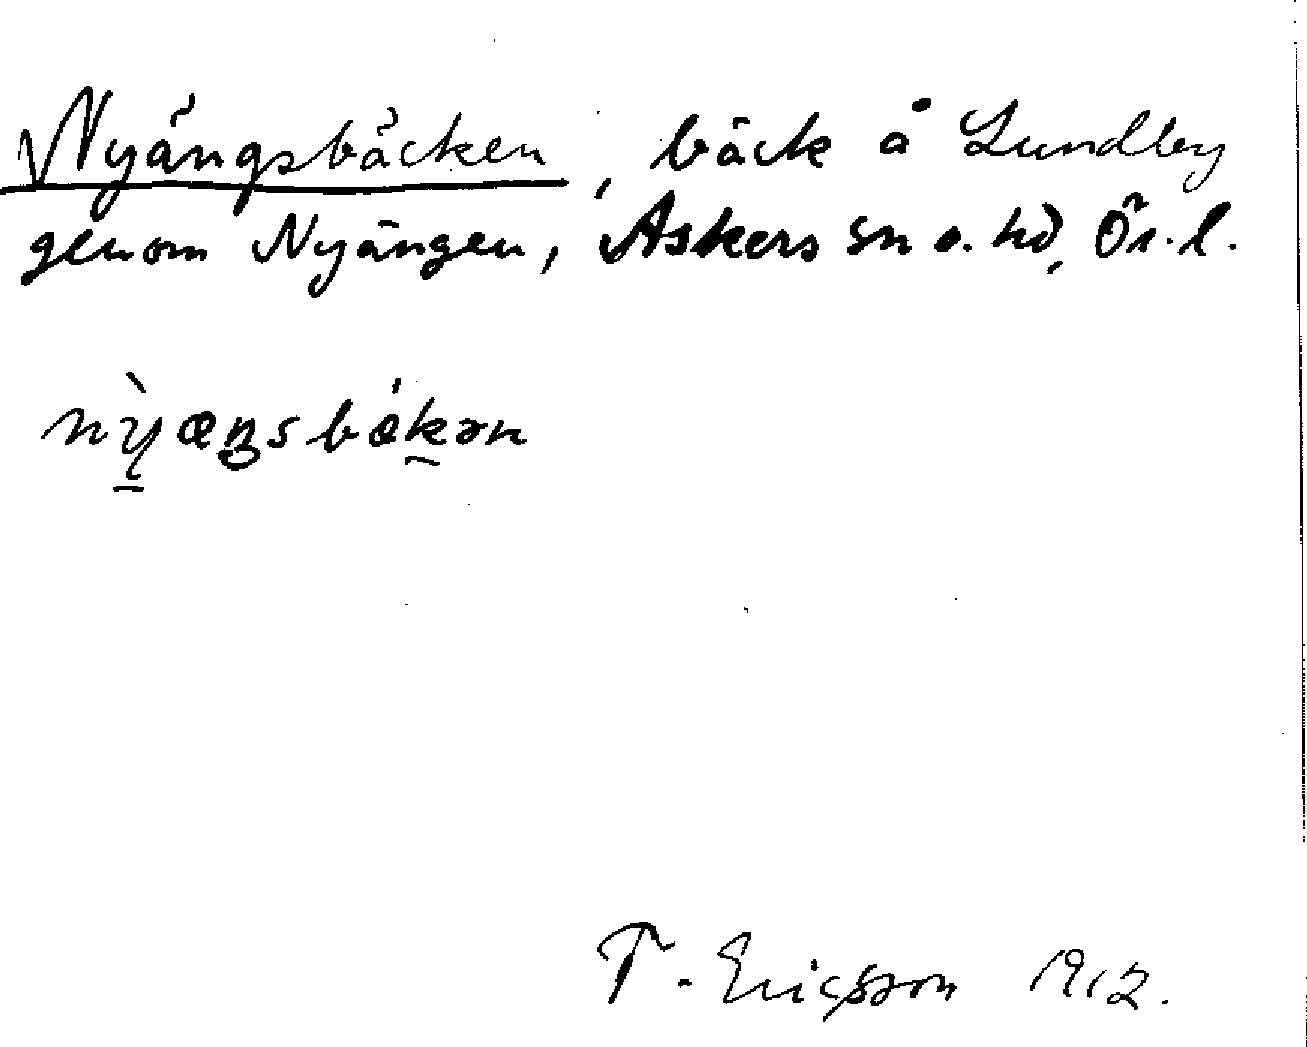 Nyängsbäcken, bäck å Lundby
genom Nyängen, Askers sn o. hd, Ör. l.
nỳæŋsbǽkən
T. Ericsson 1912.